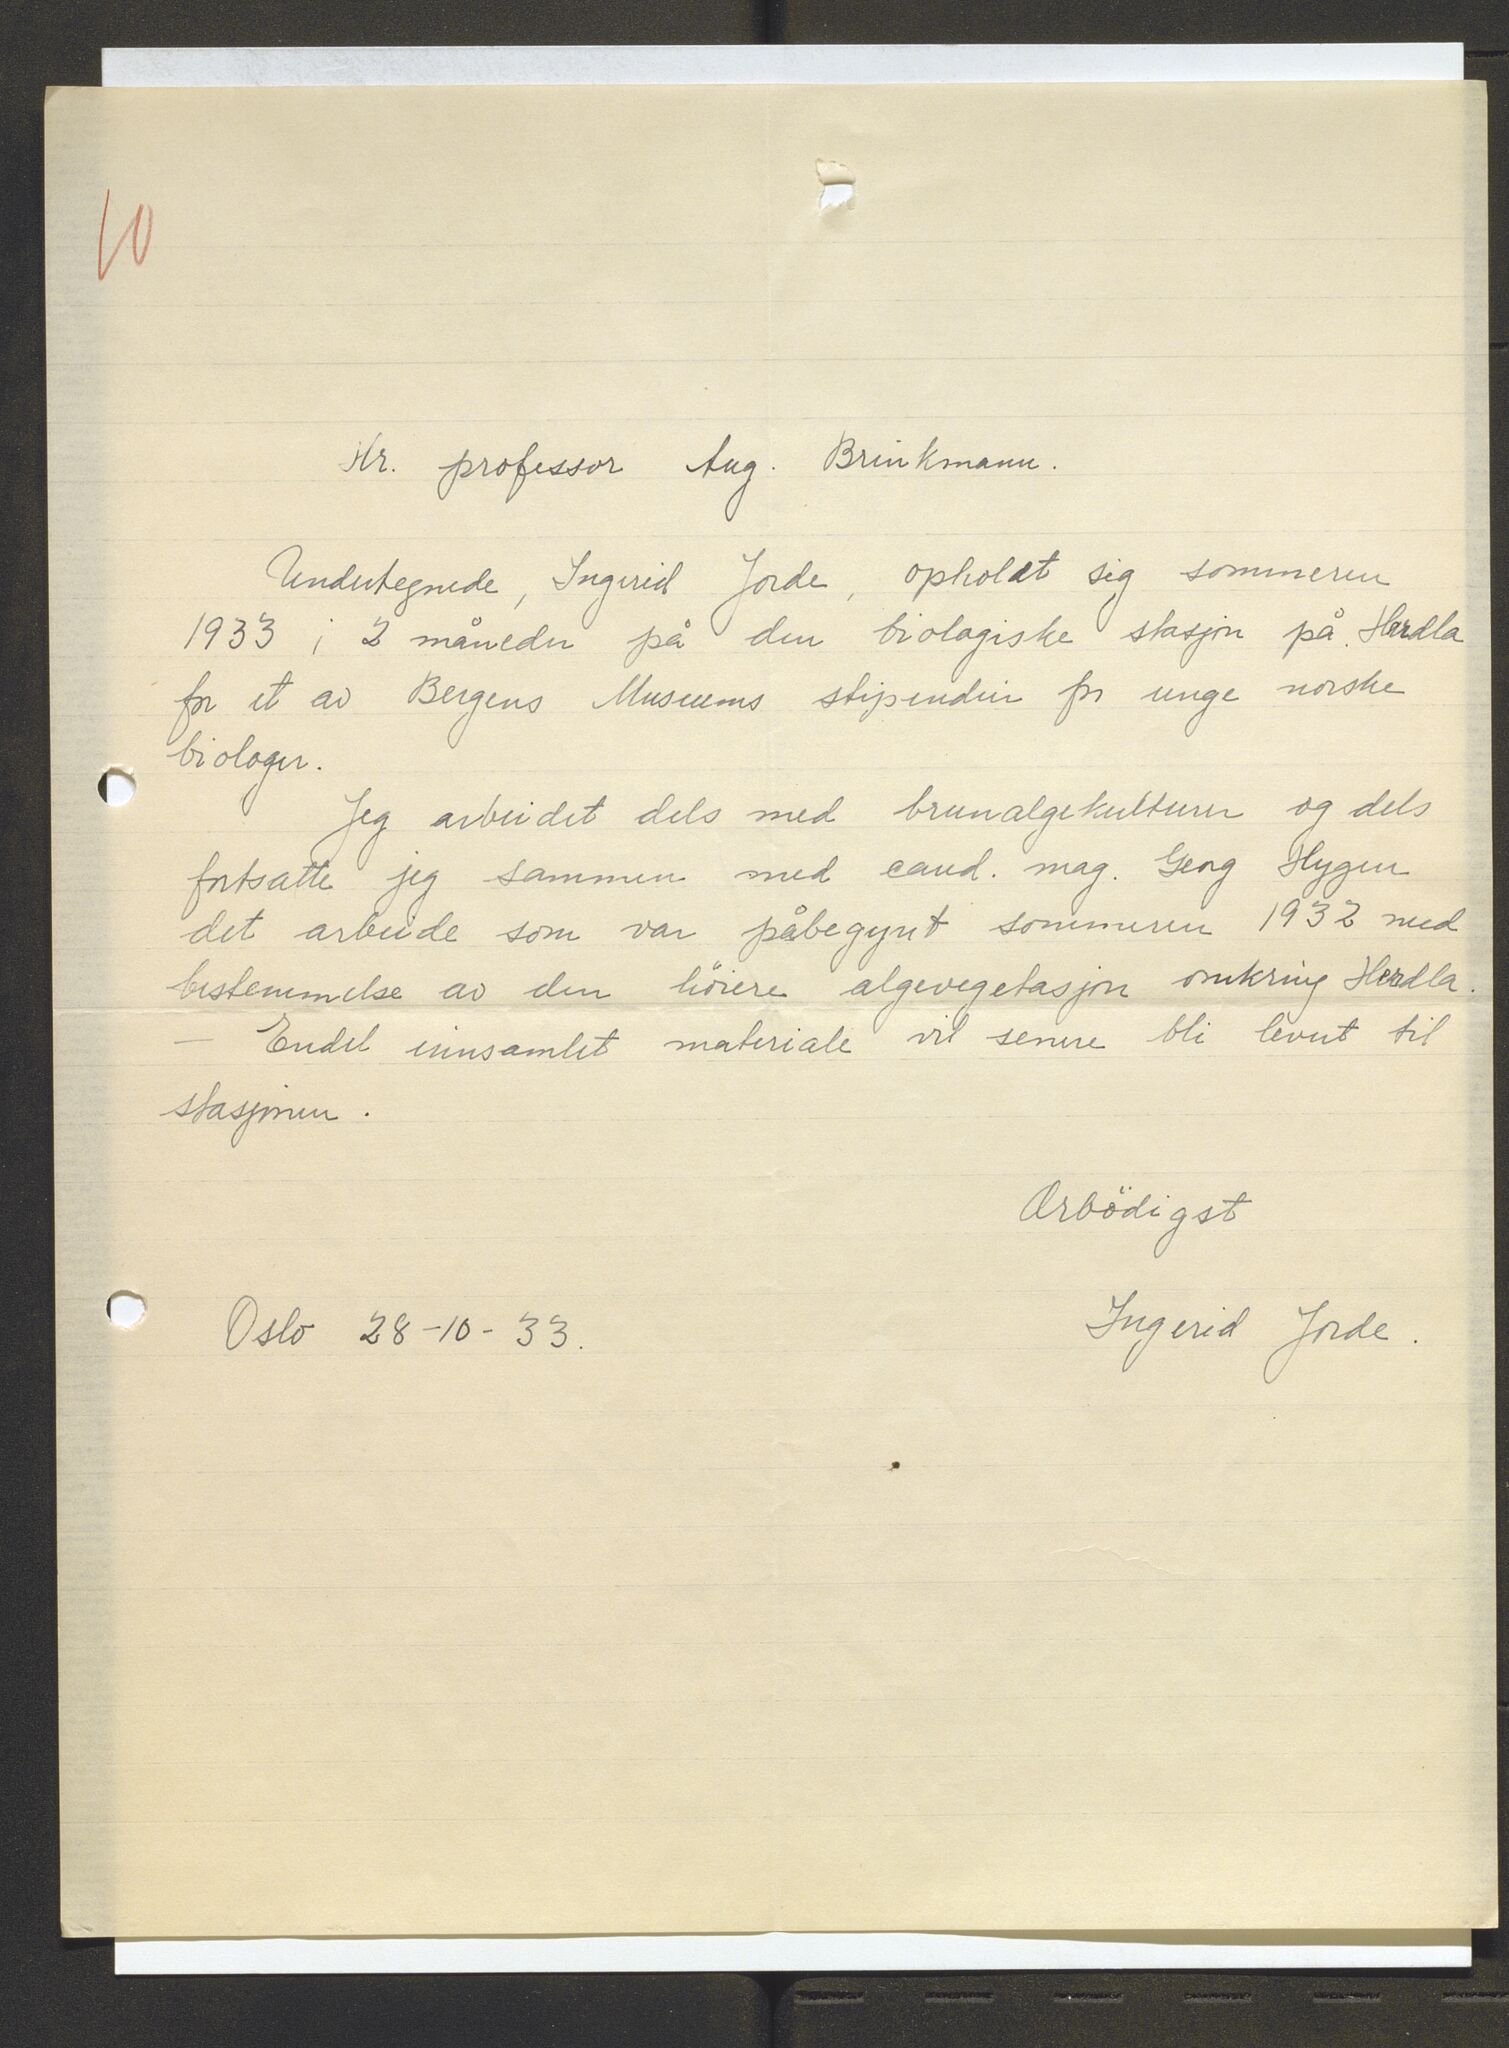 10
Hr. professor Aug. Brinkmann.
Undertegnede, Ingerid Jorde, opholdt sig sommeren
1933 i 2 måneder på den biologiske stasjon på Herdla
for et av Bergens Museums stipendier for unge norske
biologer.
Jeg arbeidet dels med brunalgekulturer og dels
fortsatte jeg sammen med cand. mag. Georg Hygen
det arbeide som var påbegynt sommeren 1932 med
bestemmelse av den höiere algevegetasjon omkring Herdla.
— Endel innsamlet materiale vil senere bli levert til
stasjonen.
Ærbödigst
Oslo 28-10-33. Ingerid Jorde.